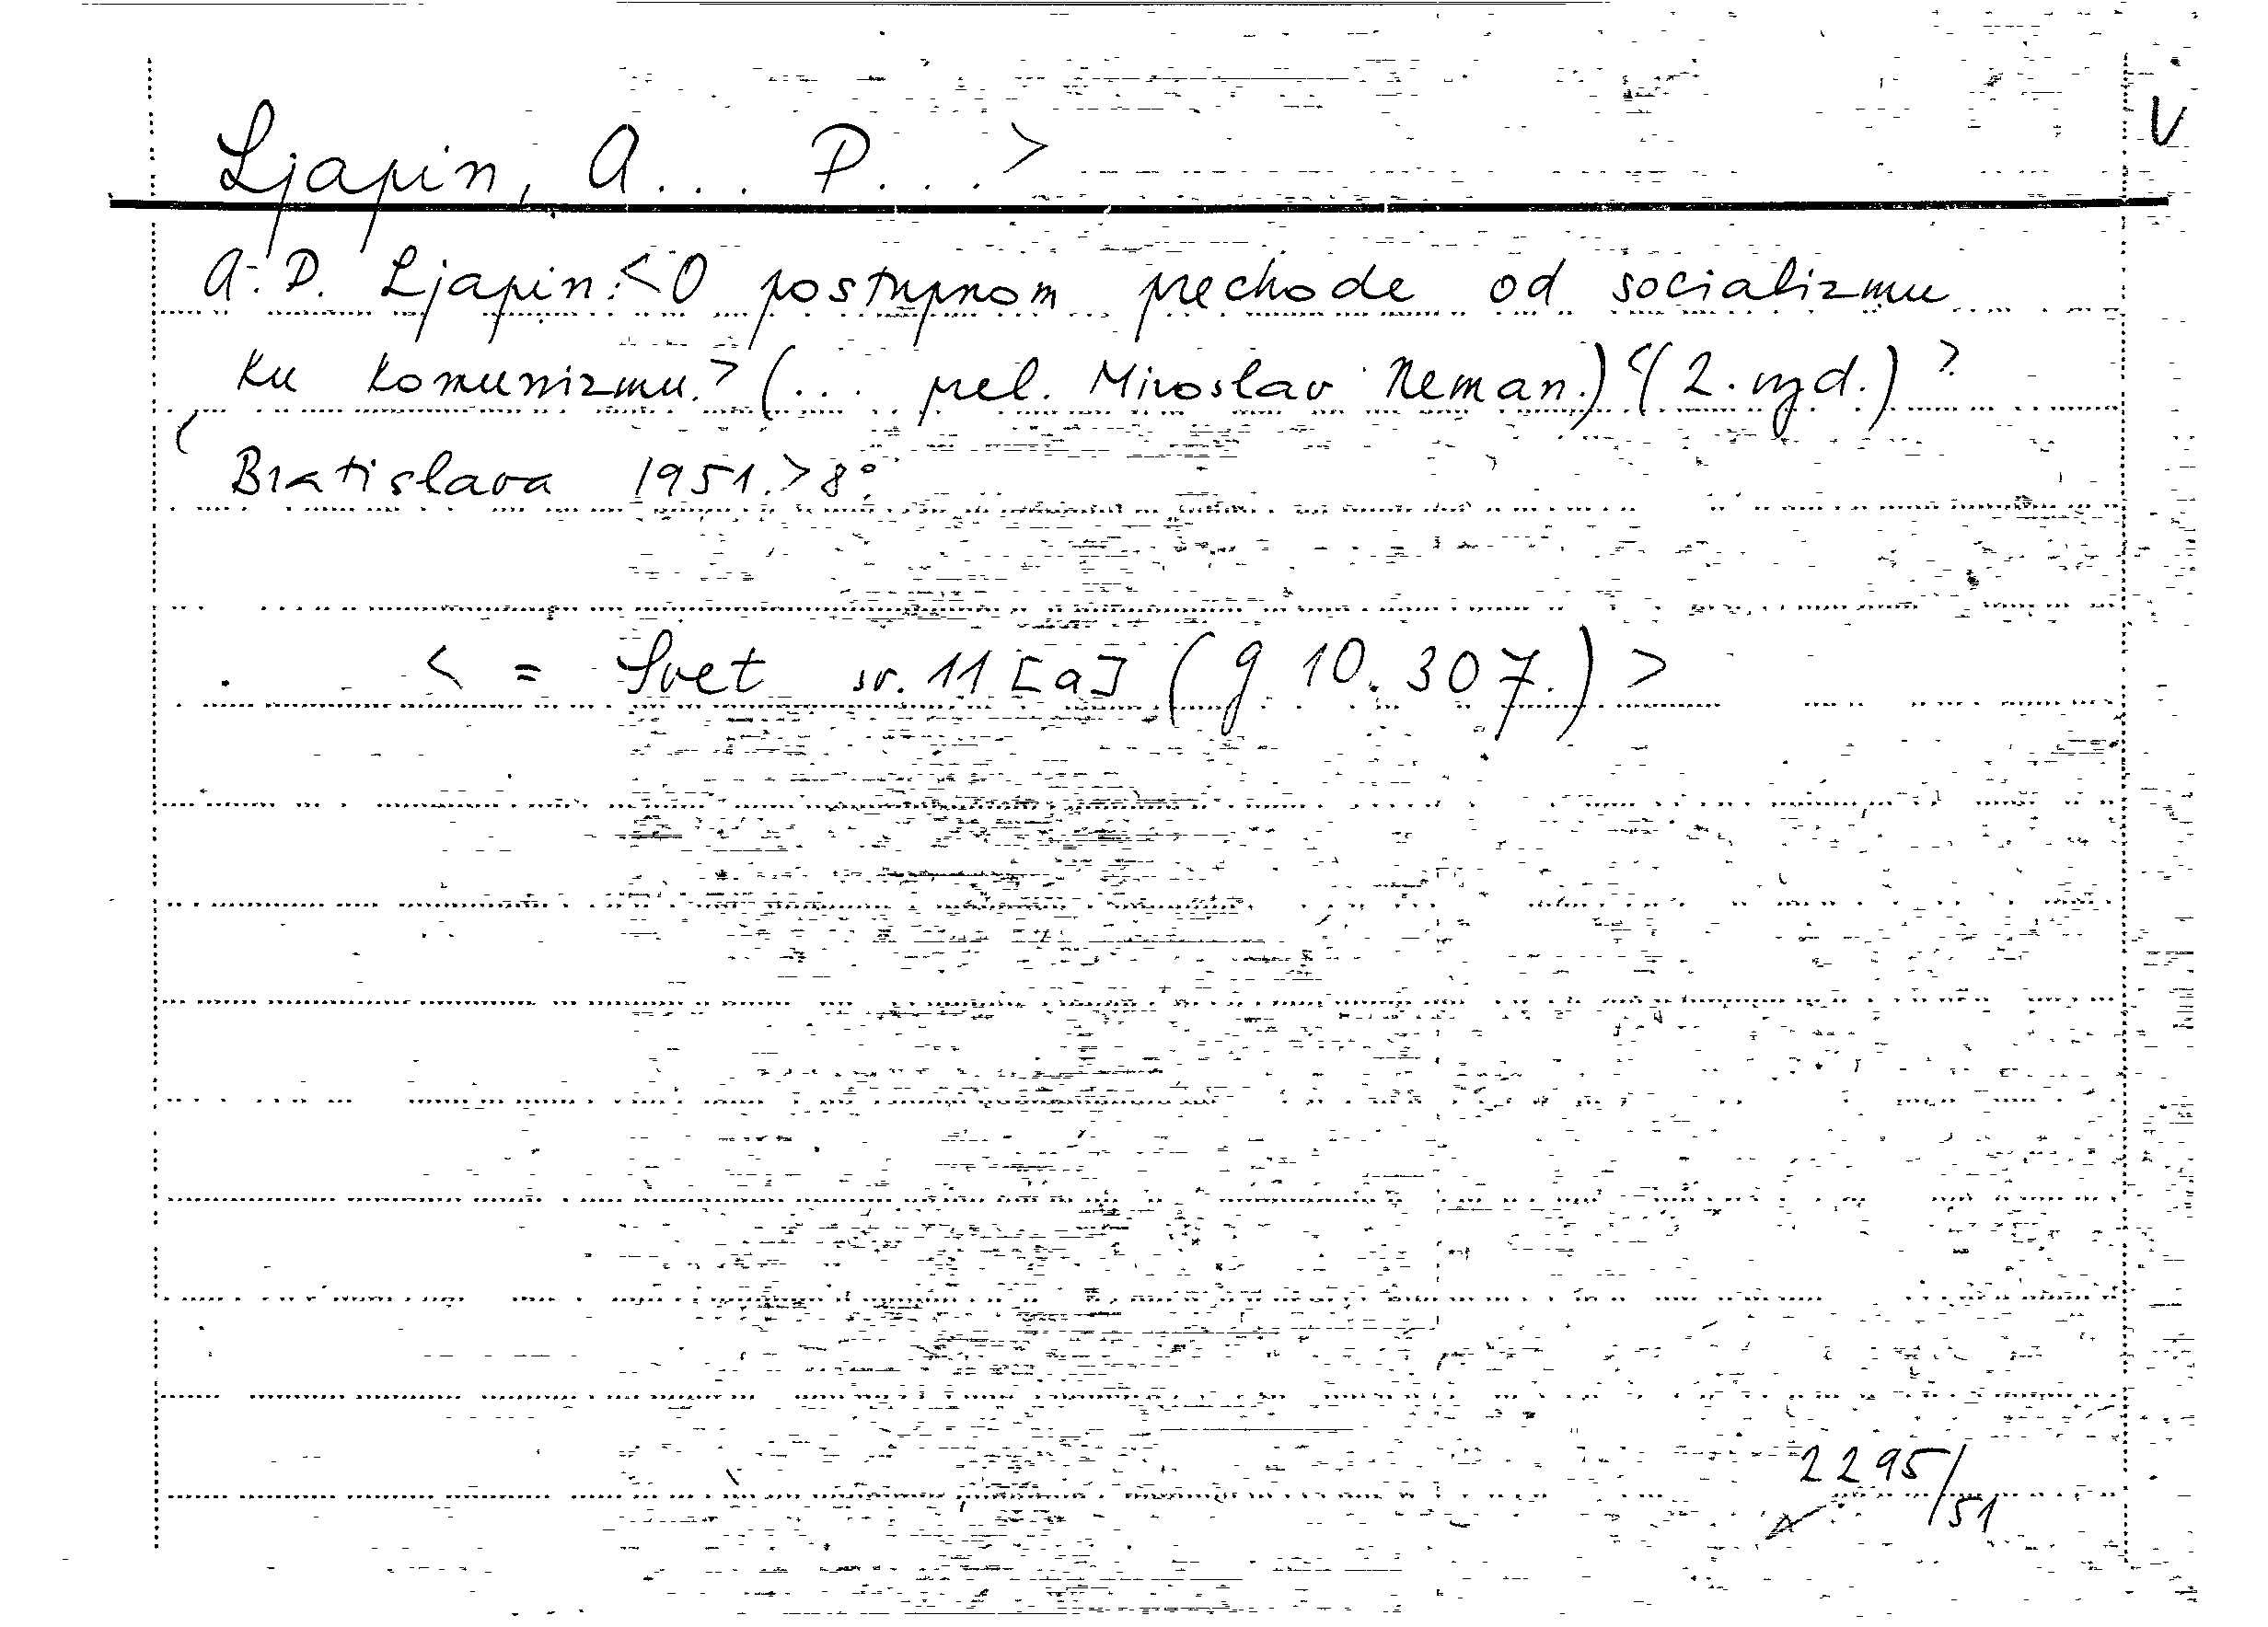 Ljapin, A... P...>
V
A. P. Ljapin:<O postupnom prechode od socializmu
ku komunizmu.>(... prel. Miroslav Neman.)<(2. vyd.)>
(Bratislava 1951.>8°.
< = Svet sv. 11 [a] (g 10. 307.) >
2295/51